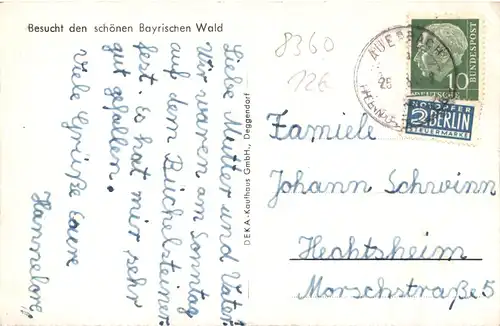 Besucht den schönen Bayrischen Wald
Liebe Mutter und Vater!
Wir waren am Sonntag
auf dem Büchelsteiner
fest. Es hat mir sehr
gut gefallen.
Viele Grüße Eure
Hannelore
DEKA-Kaufhaus GmbH., Deggendorf
8360
126
AUERBACH
25
10
DEUTSCHE
BUNDESPOST
NOTOPFER
2 BERLIN
STEUERMARKE
Famiele
Johann Schwinn
Hechtsheim
Morschstraße 5